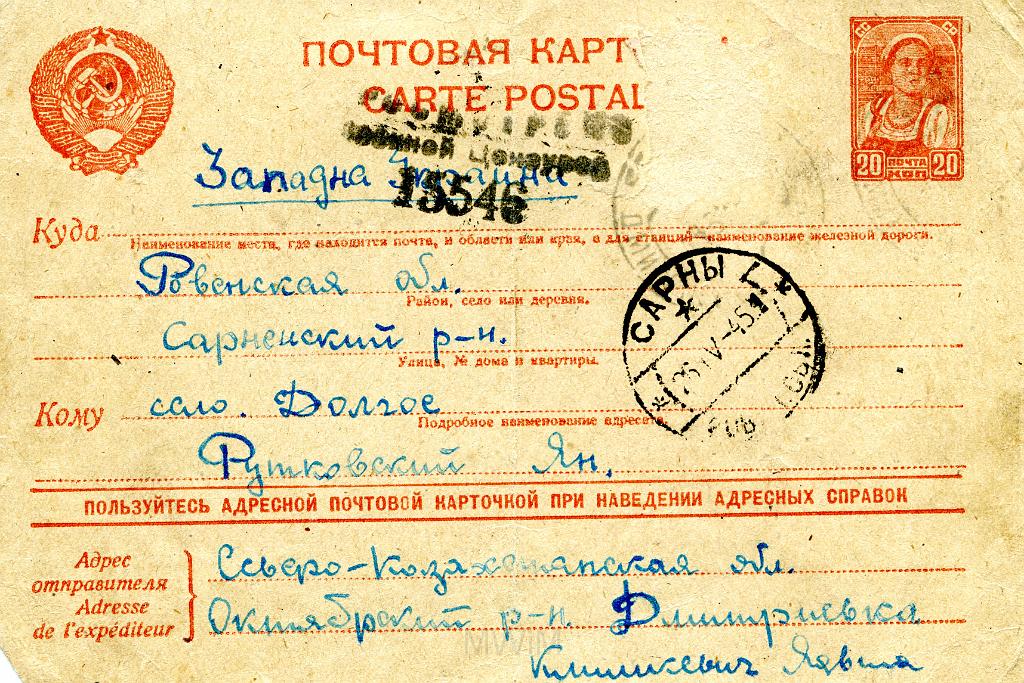 ПОЧТОВАЯ КАРТ
CARTE POSTAL
СС СР
20 ПОЧТА КОП 20
Военной Цензурой
15546
Западна Украина
Куда
Наименование места, где находится почта, и области или края, а для станций—наименование железной дороги.
Ровенская обл.
Район, село или деревня.
Сарненский р-н.
Улица, № дома и квартиры.
САРНЫ
26 IV 45
Кому село. Долгое
Подробное наименование адресата.
Рутковский Ян.
ПОЛЬЗУЙТЕСЬ АДРЕСНОЙ ПОЧТОВОЙ КАРТОЧКОЙ ПРИ НАВЕДЕНИИ АДРЕСНЫХ СПРАВОК
Адрес
отправителя
Adresse
de l'expéditeur
Северо-Козахстанская обл.
Октябрский р-н. Дмитриевка
Климкевич Ядвига
MWIM